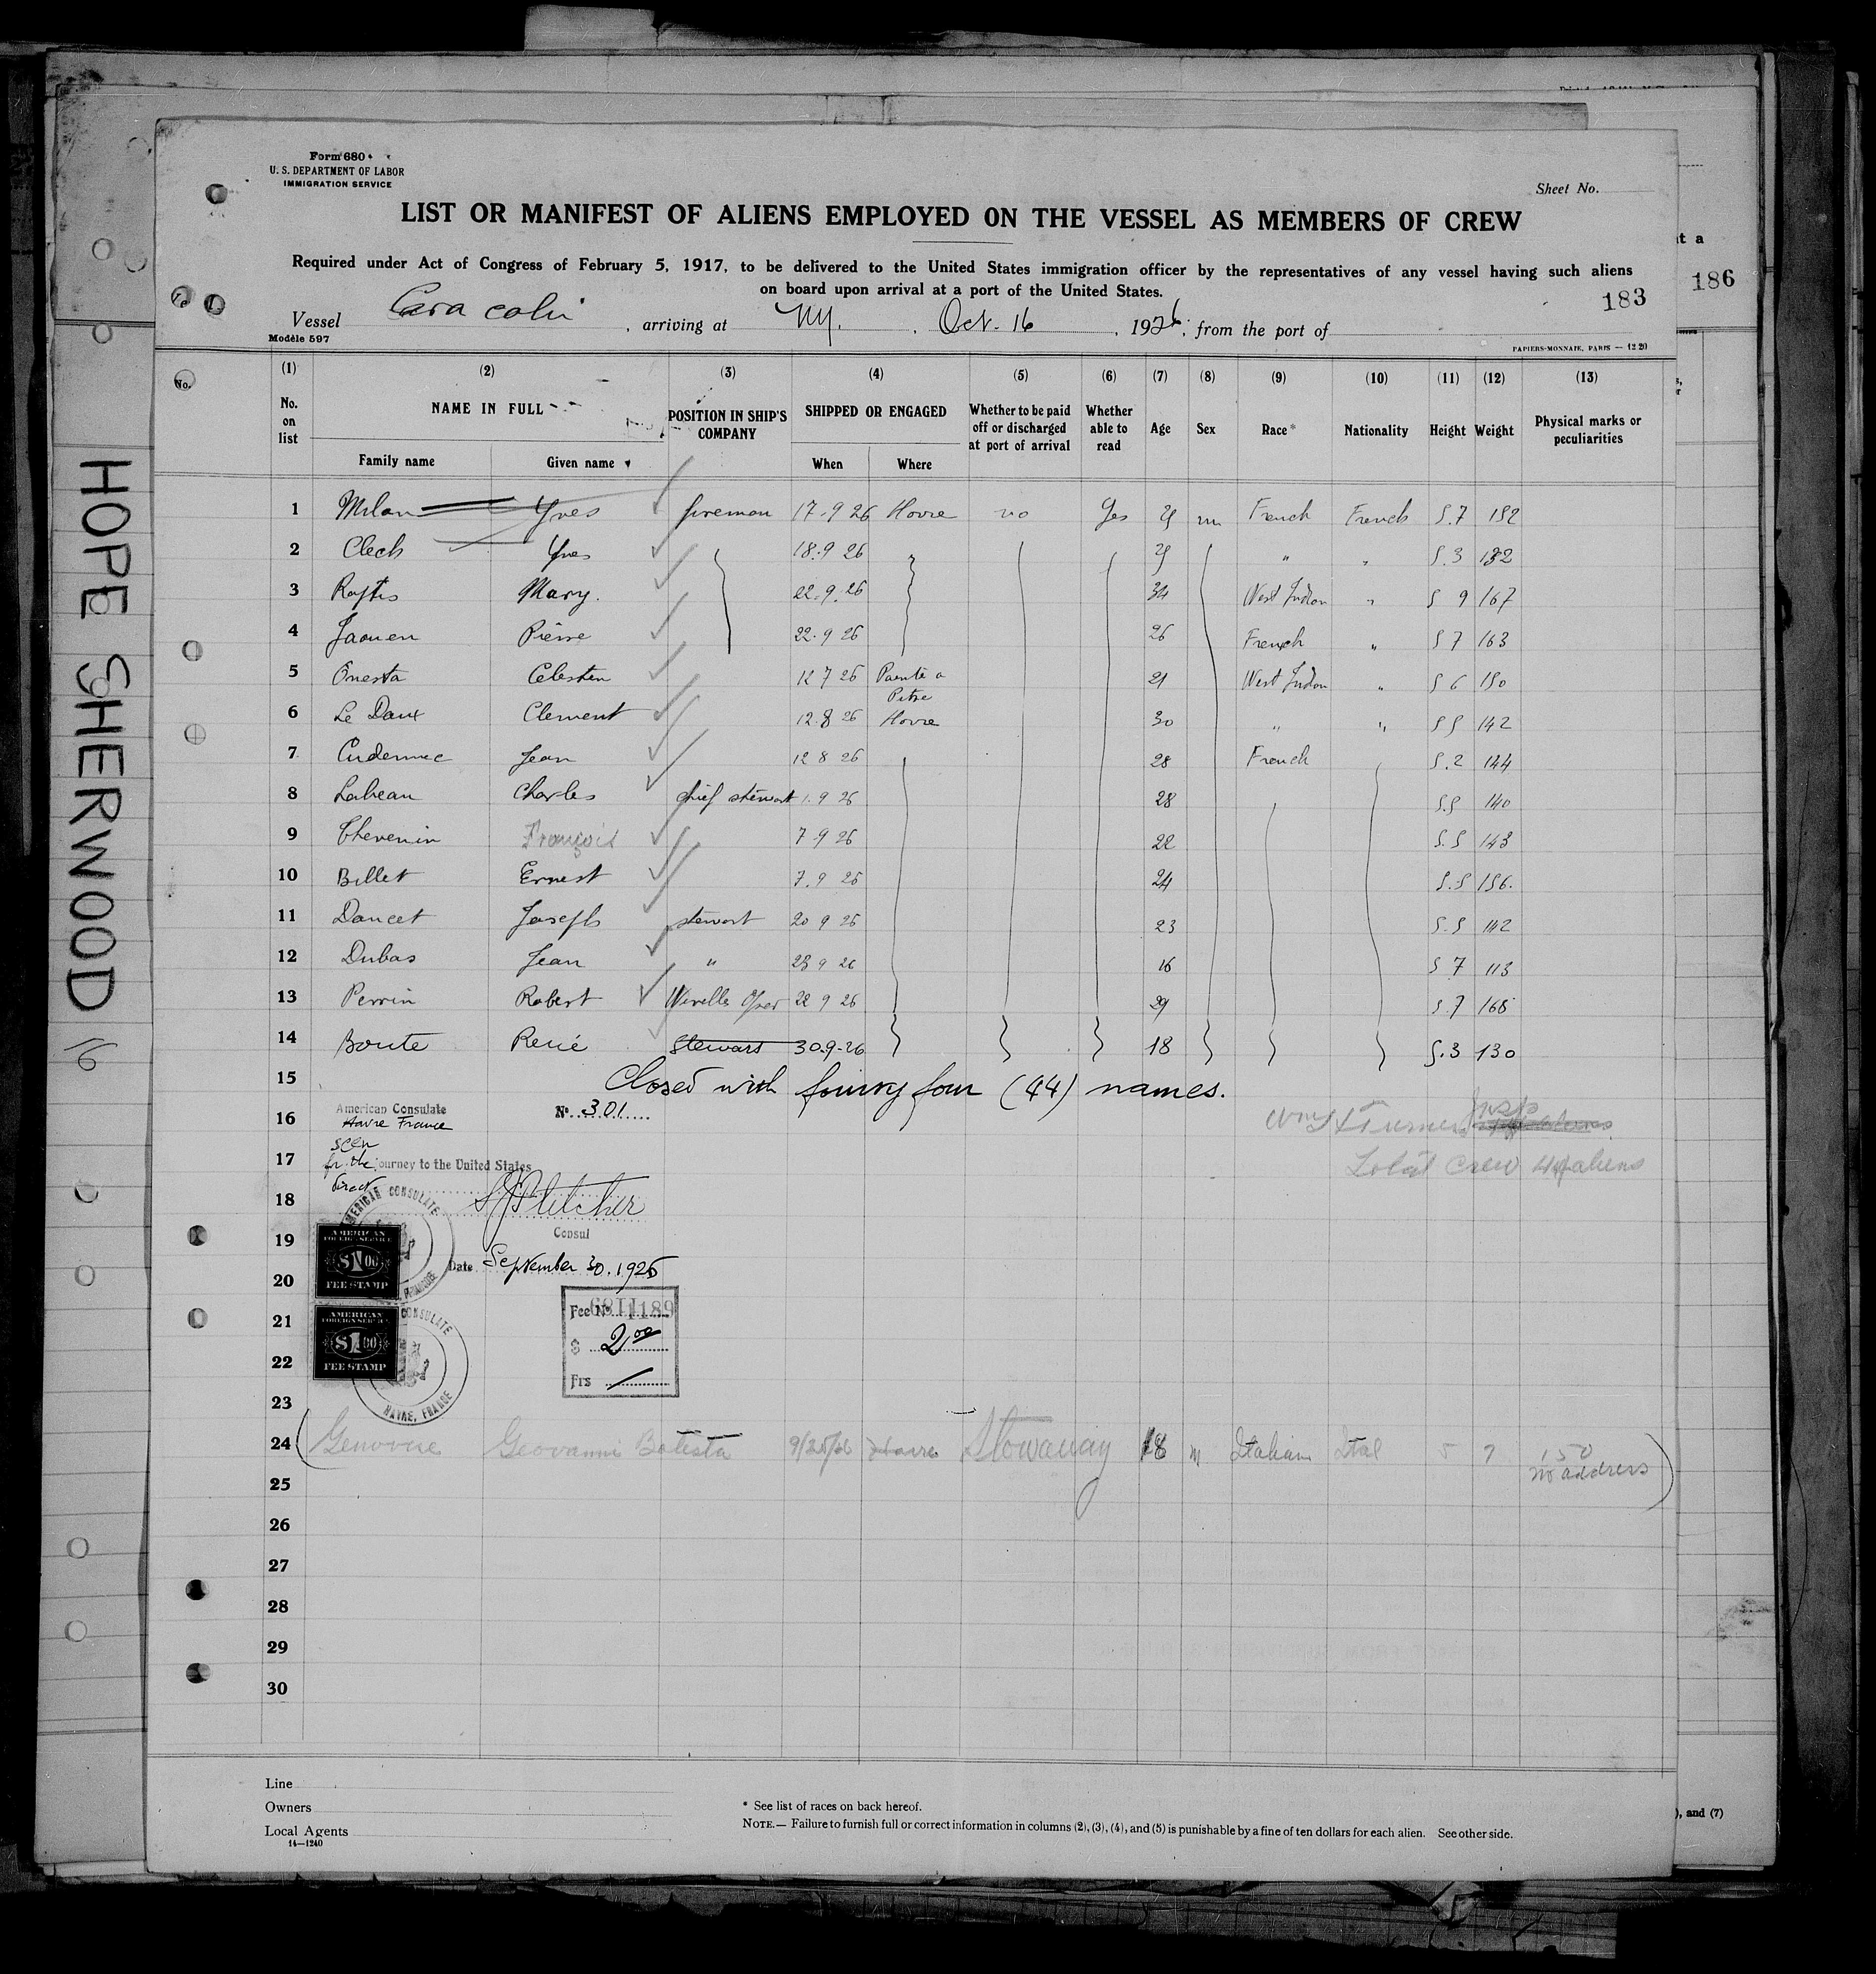 Form 680
U. S. DEPARTMENT OF LABOR
IMMIGRATION SERVICE
Sheet No.
LIST OR MANIFEST OF ALIENS EMPLOYED ON THE VESSEL AS MEMBERS OF CREW
Required under Act of Congress of February 5, 1917, to be delivered to the United States immigration officer by the representatives of any vessel having such aliens
on board upon arrival at a port of the United States.
183
186
Vessel Caracoli, arriving at N.Y., Oct. 16, 1926, from the port of
Modèle 597
PAPIERS-MONNAIE, PARIS — 12 20
(1) (2) (3) (4) (5) (6) (7) (8) (9) (10) (11) (12) (13)
No. on list NAME IN FULL POSITION IN SHIP'S COMPANY SHIPPED OR ENGAGED Whether to be paid off or discharged at port of arrival Whether able to read Age Sex Race* Nationality Height Weight Physical marks or peculiarities
Family name Given name When Where
1 Milan Yves fireman 17-9 26 Havre no Yes m French French 5.7 152
2 Clech Yves 18.9 26 " " 5.3 132
3 Mary. 22.9.26 34 West Indian " 5 9 167
4 Jaouen Pierre 22.9 26 26 French " 5 7 163
5 Onesta Celestin 12 7 26 Pointe a Pitre 21 West Indian " 5 6 150
6 Le Daux Clement 12.8 26 Havre 30 " " 5 5 142
7 Cudennec Jean 12 8 26 28 French 5.2 144
8 Labeau Charles chief stewart 1.9 26 28 5.5 140
9 Thevenin François 7.9 26 22 5.5 143
10 Billet Ernest 7.9 26 24 5.5 156.
11 Dancet Joseph stewart 20 9 26 23 5.5 142
12 Dubas Jean " 23 9 26 16 5 7 113
13 Perrin Robert Wirelle Oper 22 9 26 29 5.7 165
14 Boute René Stewart 30.9-26 18 5.3 130
15 Closed with fourty four (44) names.
16 American Consulate
Havre France
No. 301
17 seen
for the journey to the United States
direct
Total Crew 44 aliens
18
Consul
19
Date September 30. 1926
20
AMERICAN FOREIGN SERVICE $1.00 FEE STAMP
AMERICAN CONSULATE
21 Fee No. 11189
$ 2.00
22
Frs
AMERICAN FOREIGN SERVICE $1.00 FEE STAMP
CONSULATE HAVRE, FRANCE
23
24 (Genovese Geovanni Batista Havre Stowaway 18 m Italian Ital 5 7 150
no address)
25
26
27
28
29
30
Line
Owners
Local Agents
14—1240
* See list of races on back hereof.
NOTE.— Failure to furnish full or correct information in columns (2), (3), (4), and (5) is punishable by a fine of ten dollars for each alien. See other side.
), and (7)
HOPE SHERWOOD 16